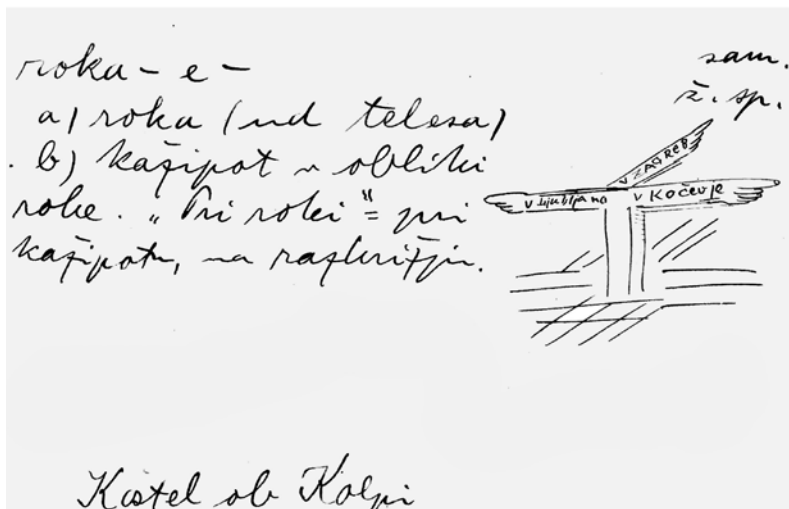 roka - e -
sam.
ž. sp.
a) roka (ud telesa)
b) kažipot v obliki
roke. „Pri roki" = pri
kažipotu, na razkrižju.
v ZAGREB
v Ljubljano
v Kočevje
Kostel ob Kolpi